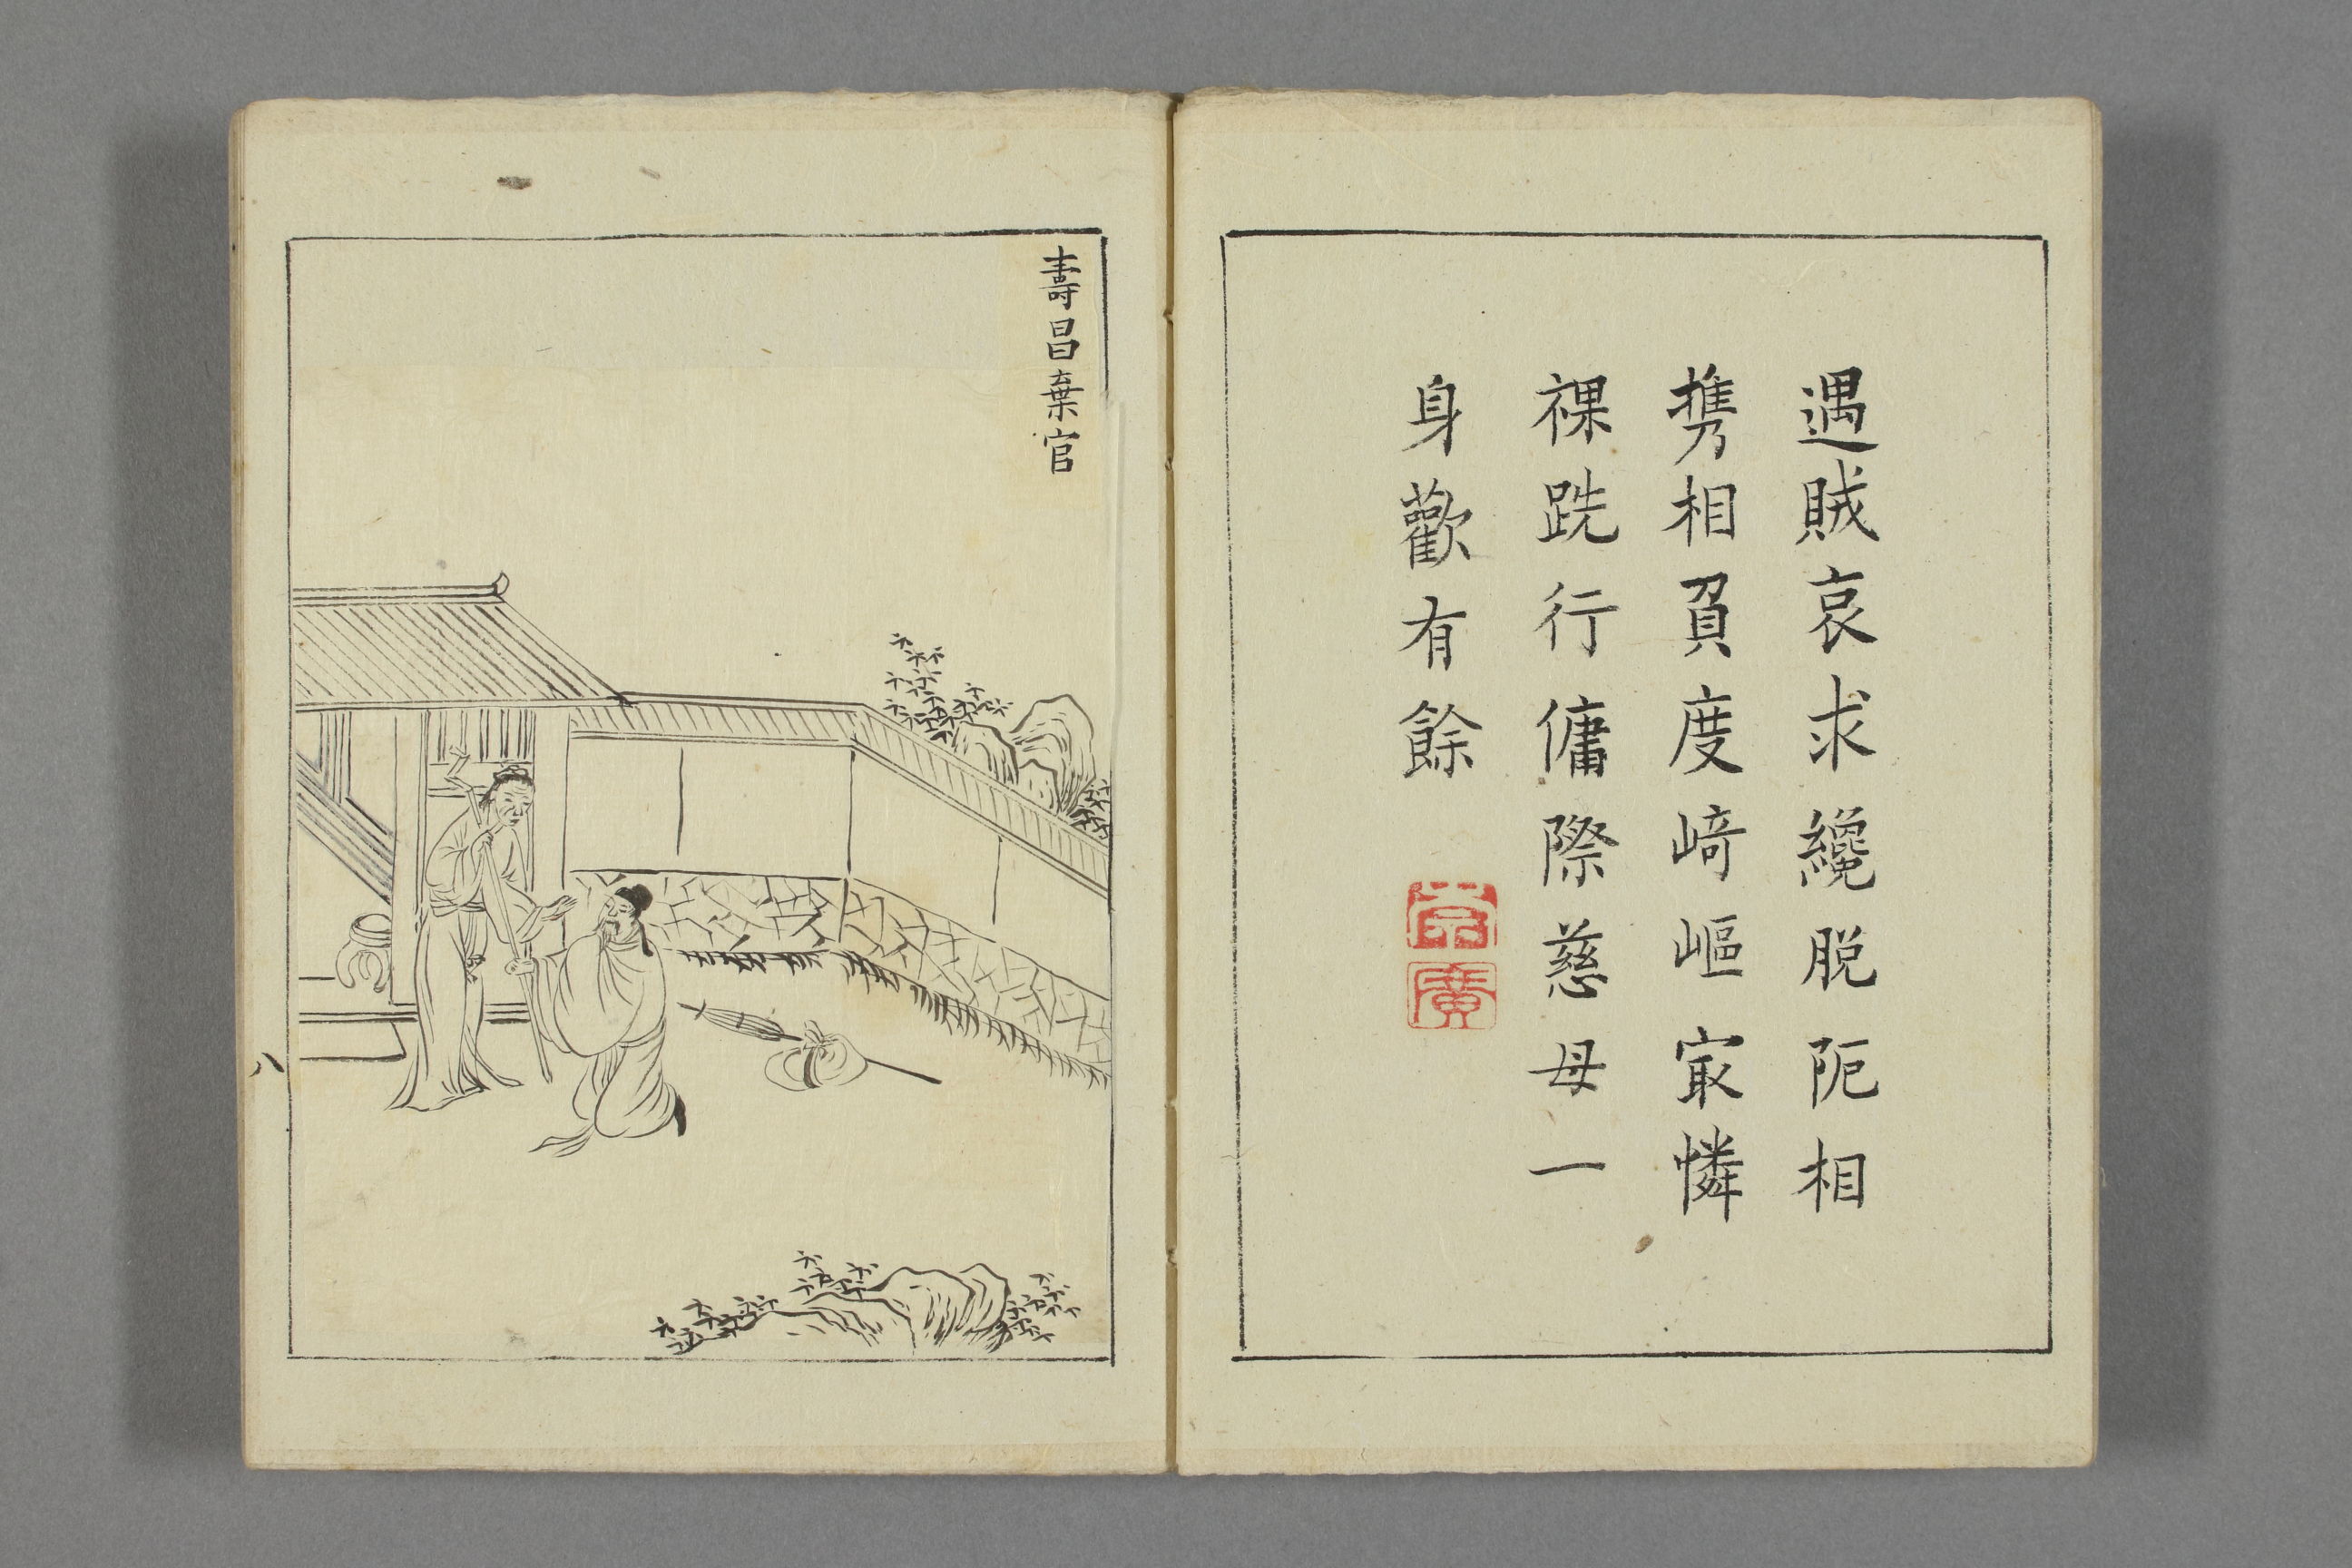 遇賊哀求纔脱阨相
攜相負度﨑嶇㝡憐
裸跣行傭際慈母一
身歡有餘
壽昌棄官
八